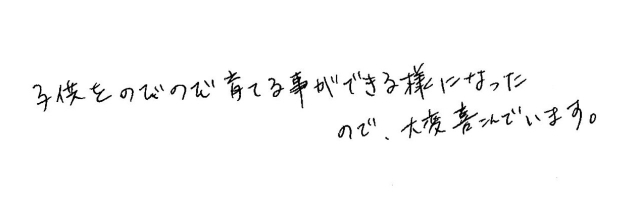 子供をのびのび育てる事ができる様になった
ので、大変喜こんでいます。